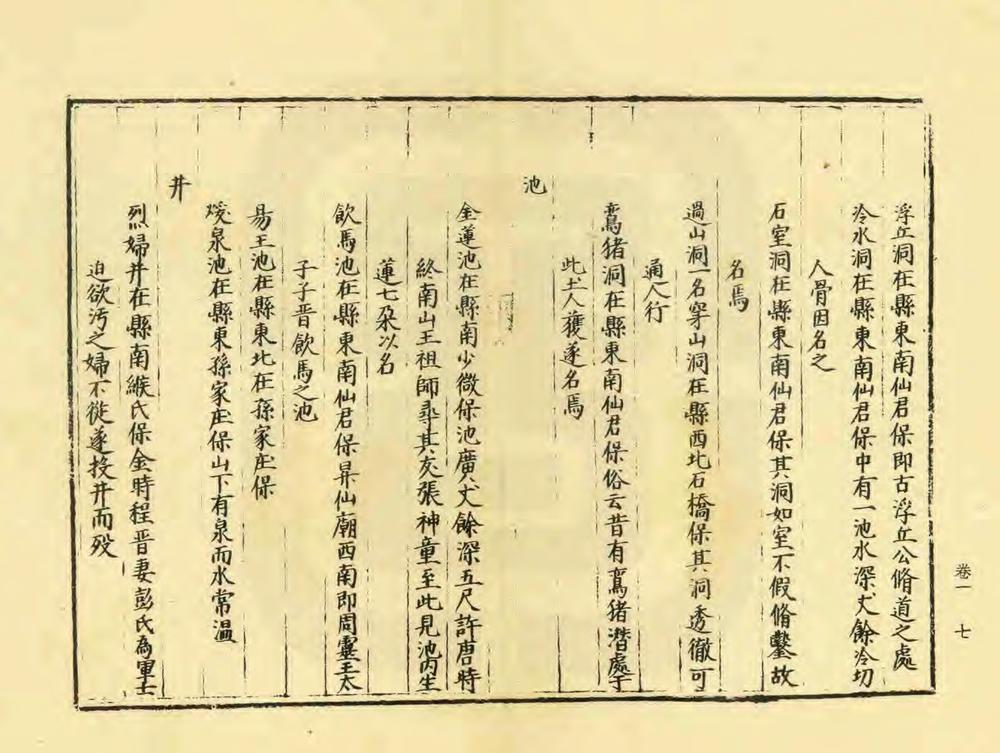 浮丘洞在縣東南仙君保即古浮丘公脩道之處
冷水洞在縣東南仙君保中有一池水深丈餘冷切
人骨因名之
石室洞在縣東南仙君保其洞如室不假脩鑿故
名焉
過山洞一名穿山洞在縣西北石橋保其洞透徹可
通人行
鸞猪洞在縣東南仙君保俗云昔有鸞猪潛處于
此土人獲遂名焉
池
金蓮池在縣南少微保池廣丈餘深五尺許唐時
終南山王祖師尋其友張神童至此見池內生
蓮七朶以名
飲馬池在縣東南仙君保昇仙廟西南即周靈王太
子子晋飲馬之池
昜王池在縣東北在孫家庄保
煖泉池在縣東孫家庄保山下有泉而水常溫
井
烈婦井在縣南緱氏保金時程晋妻彭氏為軍士
迫欲污之婦不從遂投井而歿
卷一 七